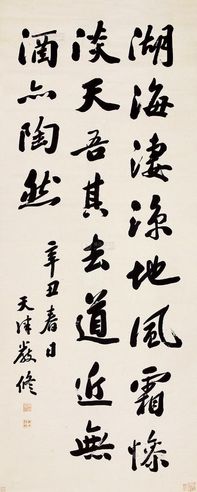 湖海凄凉地風霜惨
淡天吾其去道近無
酒亦陶然
辛丑春日
天津嚴修